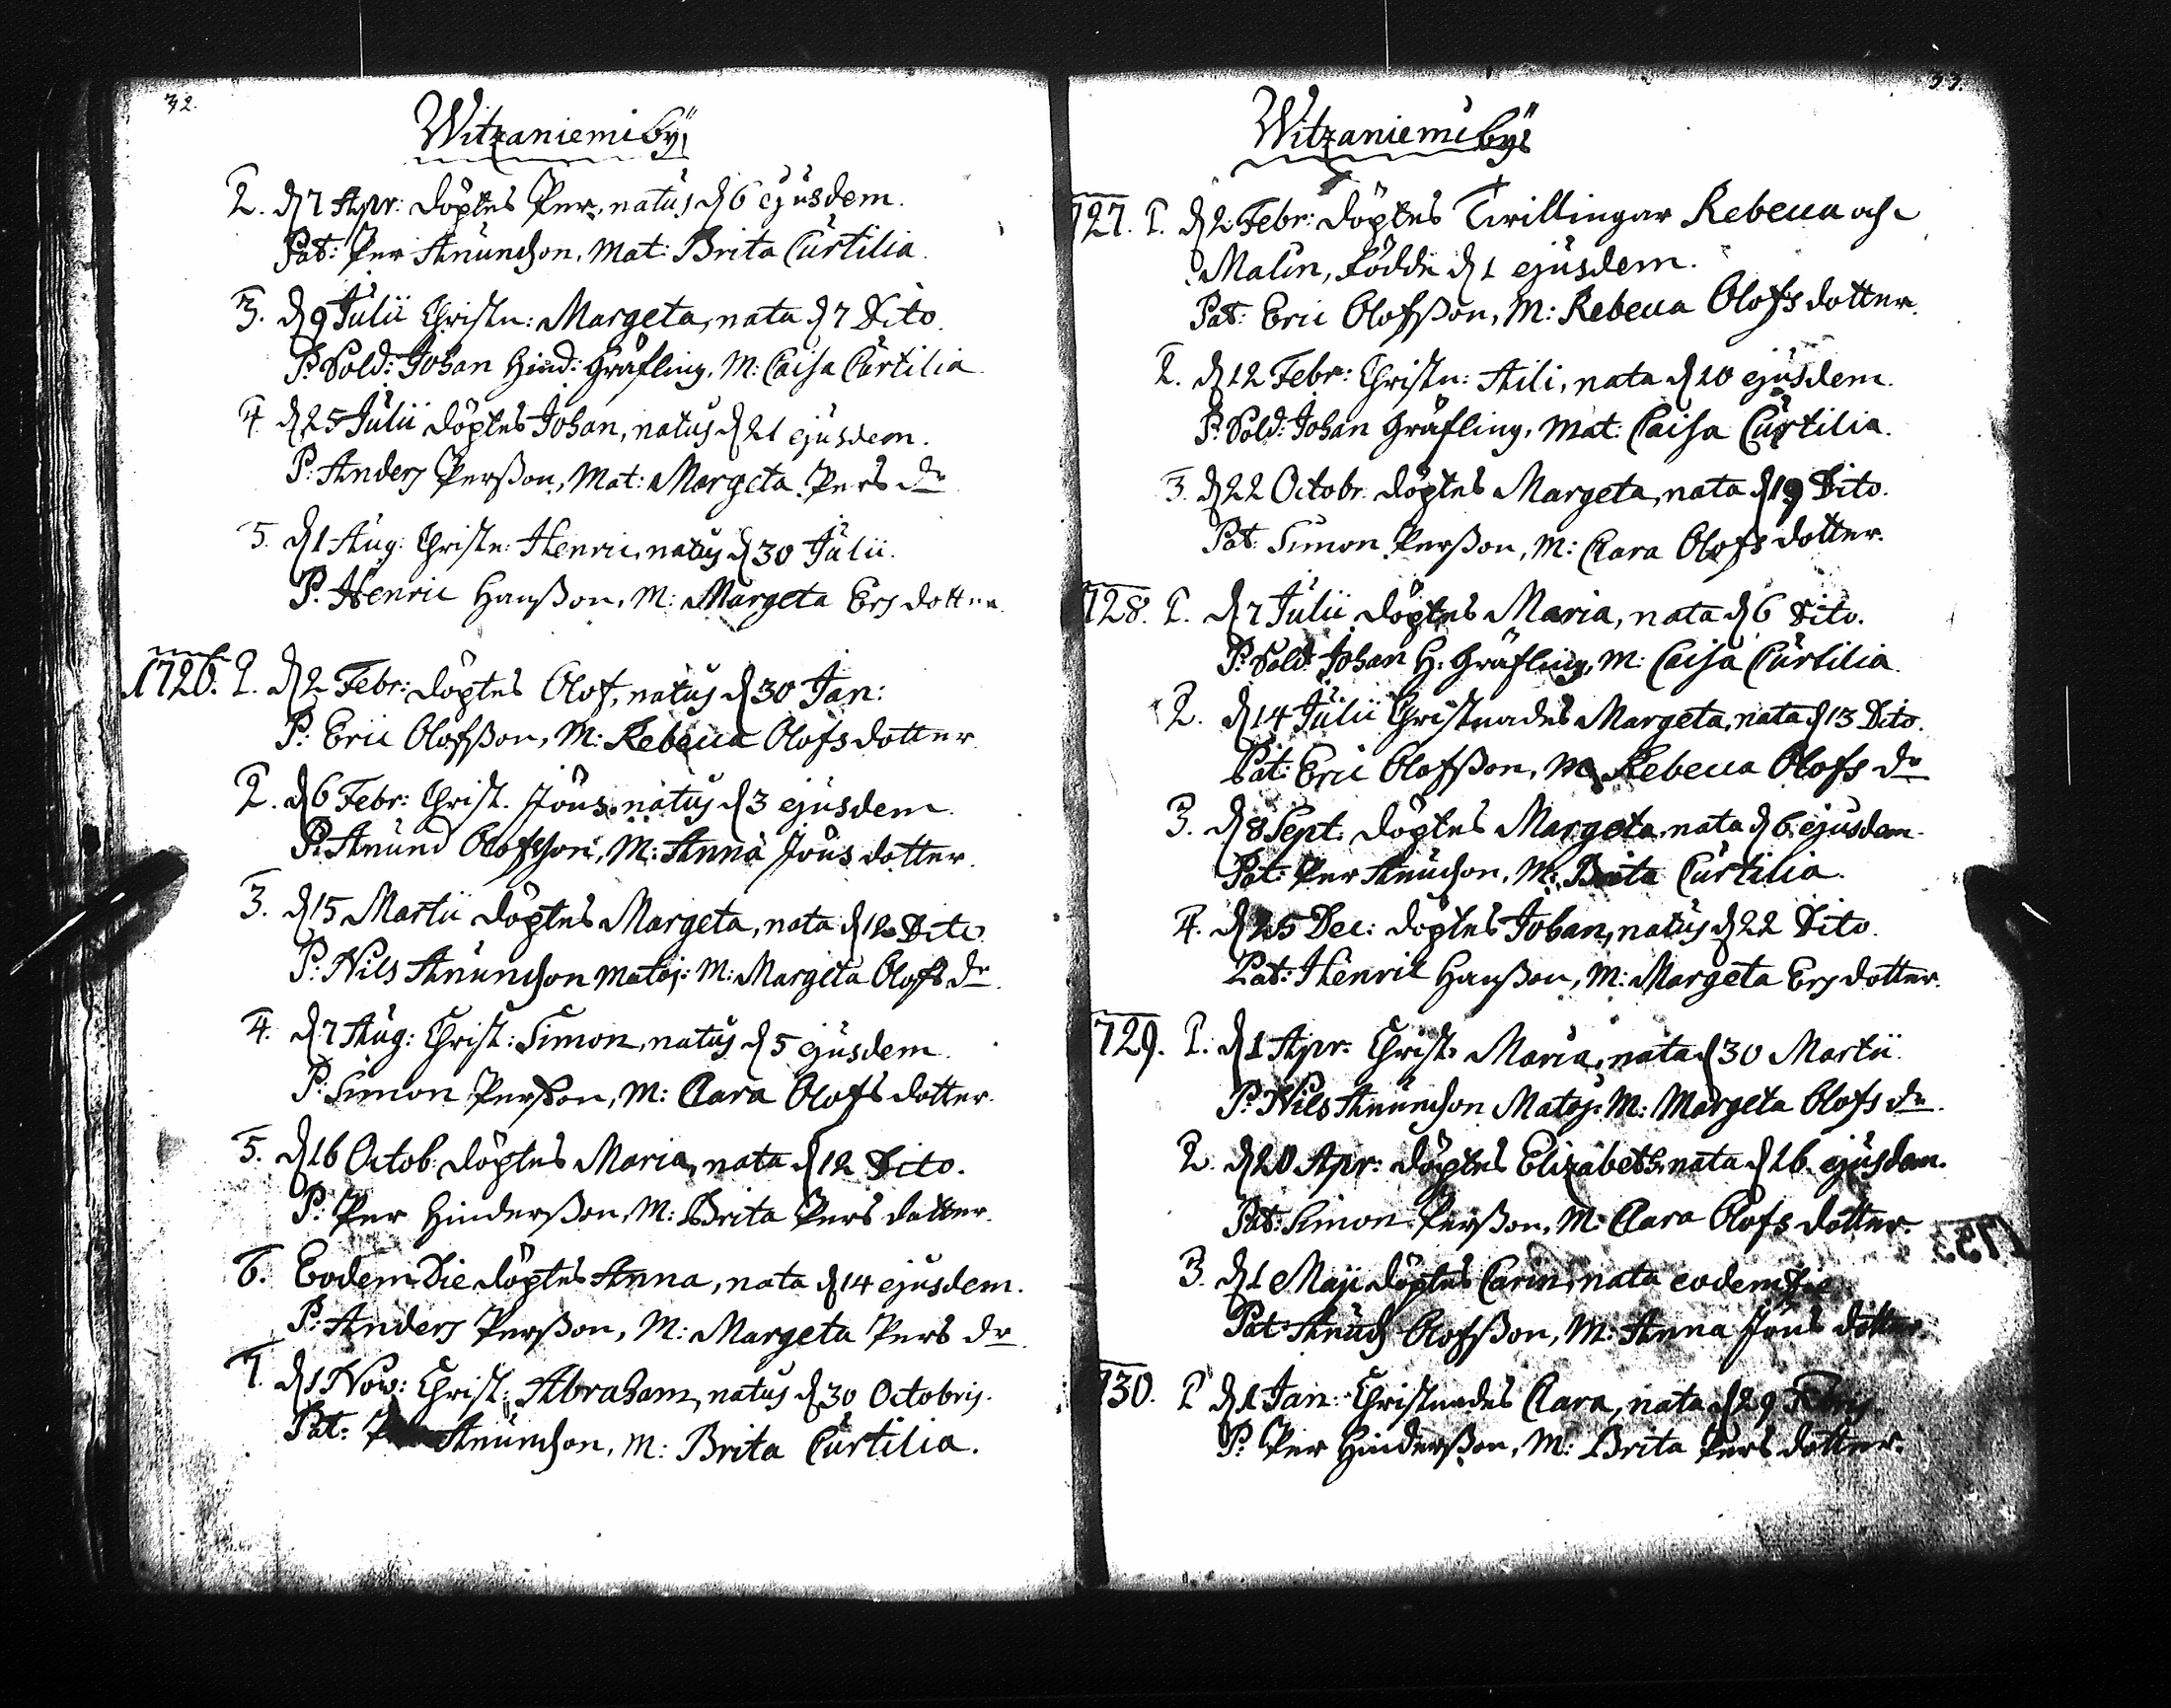 32.
Witzaniemi by
2. d 7 Apr: döptes Per, natus d 6 ejusdem.
Pat: Per Anundson, Mat: Brita Curtilia.
3. d 9 Julii Christn: Margeta, nata d 7 Dito.
P. Sold: Johan Hind: Gräfling, M: Caisa Curtilia.
4. d 25 Julii döptes Johan, natus d 21 ejusdem.
P: Anders Perßon, Mat: Margeta Pers dr
5. d 1 Aug: Christn: Henric, natus d 30 Julii.
P. Henric Hanßon, M: Margeta Ers dotter.
1726. 1. d 2 Febr: döptes Olof, natus d 30 Jan:
P: Eric Olofßon, M: Rebecca Olofs dotter.
2. d 6 Febr: Christ. Jöns, natus d 3 ejusdem.
P: Anund Olofsson, M: Anna Jöns dotter.
3. d 15 Martii döptes Margeta, nata d 12 Dito.
P: Nils Anundson Matoj: M: Margeta Olofs dr.
4. d 7 Aug: Christ: Simon, natus d 5 ejusdem.
P: Simon Perßon, M: Clara Olofs dotter.
5. d 16 Octob: döptes Maria, nata d 12 Dito.
P: Per Hinderßon, M: Brita Pers dotter.
6. Eodem Die döptes Anna, nata d 14 ejusdem.
P: Anders Perßon, M: Margeta Pers dr.
7. d 1 Nov: Christ: Abraham, natus d 30 Octobris.
Pat: Anundson, M: Brita Curtilia.
33.
Witzaniemi by
1727. 1. d 2 Febr: döptes Twillingar Rebecca och
Malin, födde d 1 ejusdem.
Pat: Eric Olofßon, M: Rebecca Olofs dotter.
2. d 12 Febr: Christn: Aili, nata d 10 ejusdem.
P. Sold: Johan Gräfling, Mat: Caisa Curtilia.
3. d 22 Octobr. döptes Margeta, nata d 19 Dito.
Pat: Simon Perßon, M: Clara Olofs dotter.
1728. 1. d 7 Julii döptes Maria, nata d 6 Dito.
P: Sold: Johan H: Gräfling, M: Caisa Curtilia.
2. d 14 Julii Christnades Margeta, nata d 13 Dito.
Pat: Eric Olofßon, M. Rebecca Olofs dr
3. d 8 Sept. döptes Margeta, nata d 6 ejusdem.
Pat: Per Anundson, M: Brita Curtilia.
4. d 25 Dec: döptes Johan, natus d 22 Dito.
Pat: Henric Hanßon, M: Margeta Ers dotter.
1729. 1. d 1 Apr: Christ: Maria, nata d 30 Martii.
P: Nils Anundson Matoj: M: Margeta Olofs dr.
2. d 20 Apr: döptes Elizabeth, nata d 16 ejusdem.
Pat: Simon Perßon, M: Clara Olofs dotter.
3. d 1 Maji döptes Carin, nata eodem die
Pat: Anund Olofßon, M: Anna Jöns dotter.
1730. 1 d 1 Jan: Christnades Clara, nata d 29
P: Per Hinderßon, M: Brita Pers dotter.